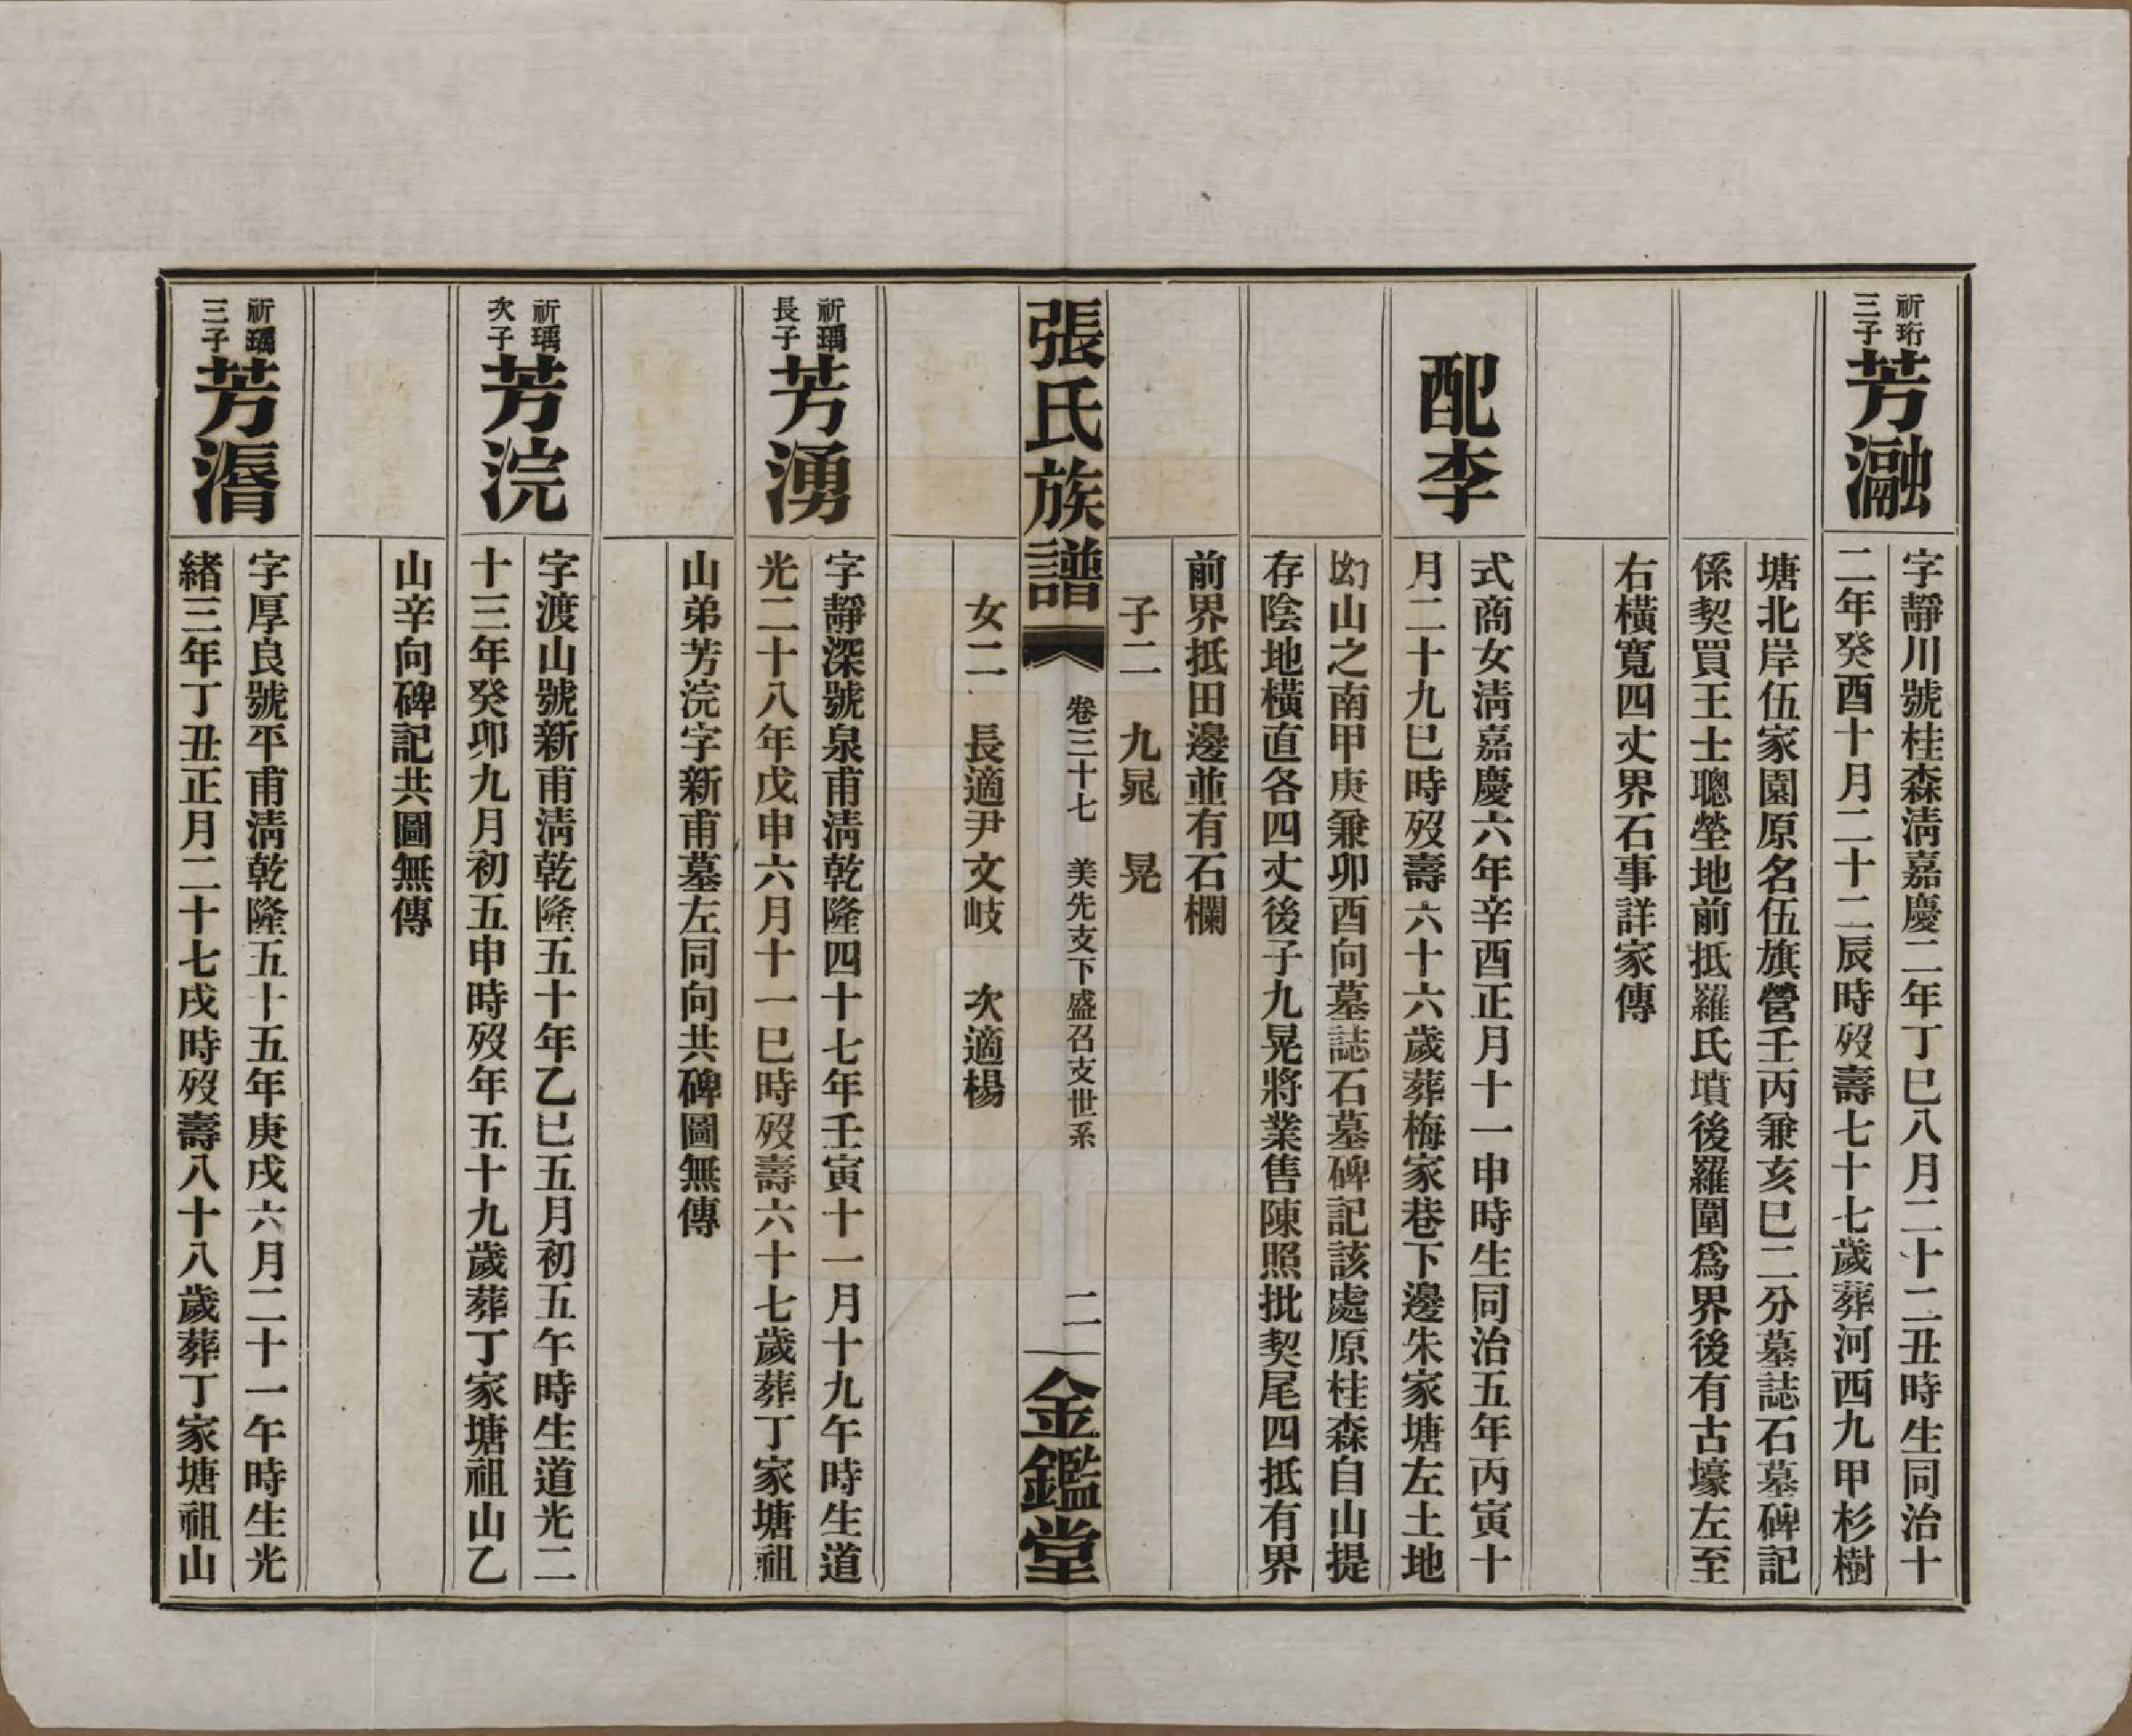 祈珩
三子
芳瀜
字靜川號桂森清嘉慶二年丁巳八月二十二丑時生同治十
二年癸酉十月二十二辰時歿壽七十七歲葬河西九甲杉樹
塘北岸伍家園原名伍旗營壬丙兼亥巳二分墓誌石墓碑記
係契買王士聰塋地前抵羅氏墳後羅圍爲界後有古壕左至
右橫寬四丈界石事詳家傳
配李
式商女清嘉慶六年辛酉正月十一申時生同治五年丙寅十
月二十九巳時歿壽六十六歲葬梅家巷下邊朱家塘左土地
坳山之南甲庚兼卯酉向墓誌石墓碑記該處原桂森自山提
存陰地橫直各四丈後子九晃將業售陳照批契尾四抵有界
前界抵田邊並有石欄
子二 九晁 晃
張氏族譜
卷三十七 美先支下盛召支世系
二
金鑑堂
女二 長適尹文岐 次適楊
祈瑀
長子
芳湧
字靜深號泉甫清乾隆四十七年壬寅十一月十九午時生道
光二十八年戊申六月十一巳時歿壽六十七歲葬丁家塘祖
山弟芳浣字新甫墓左同向共碑圖無傳
祈瑀
次子
芳浣
字渡山號新甫清乾隆五十年乙巳五月初五午時生道光二
十三年癸卯九月初五申時歿年五十九歲葬丁家塘祖山乙
山辛向碑記共圖無傳
祈瑀
三子
芳湑
字厚良號平甫清乾隆五十五年庚戌六月二十一午時生光
緒三年丁丑正月二十七戌時歿壽八十八歲葬丁家塘祖山